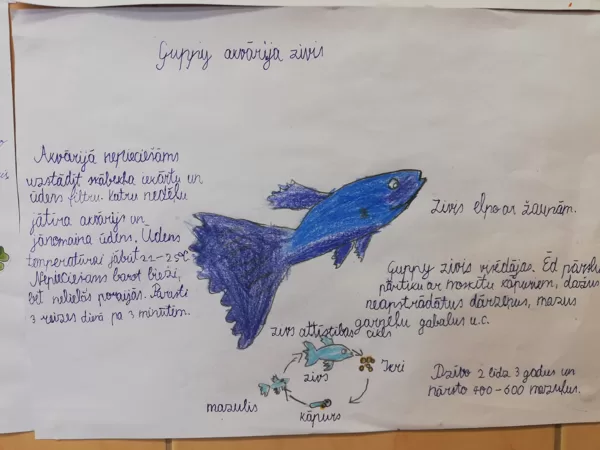 Guppy akvārija zivis
Akvārijā nepieciešams
uzstādīt skābekļa iekārtu un
ūdens filtru. Katru nedēļu
jātīra akvārijs un
jānomaina ūdens. Ūdens
temperatūrai jābūt 21-25°C
Nepieciešams barot bieži,
bet nelielās porcijās. Parasti
3 reizes divā pa 3 minūtēm.
Zivis elpo ar žaunām.
Guppy zivis visēdājas. Ēd pārslu
pārtiku ar moskītu kāpuriem, dažus
neapstrādātus dārzeņus, mazus
garneļu gabalus u.c.
zivs attīstības cikls
zivs
Ikri
kāpurs
mazulis
Dzīvo 2 līdz 3 gadus un
nārsto 400-600 mazuļus.